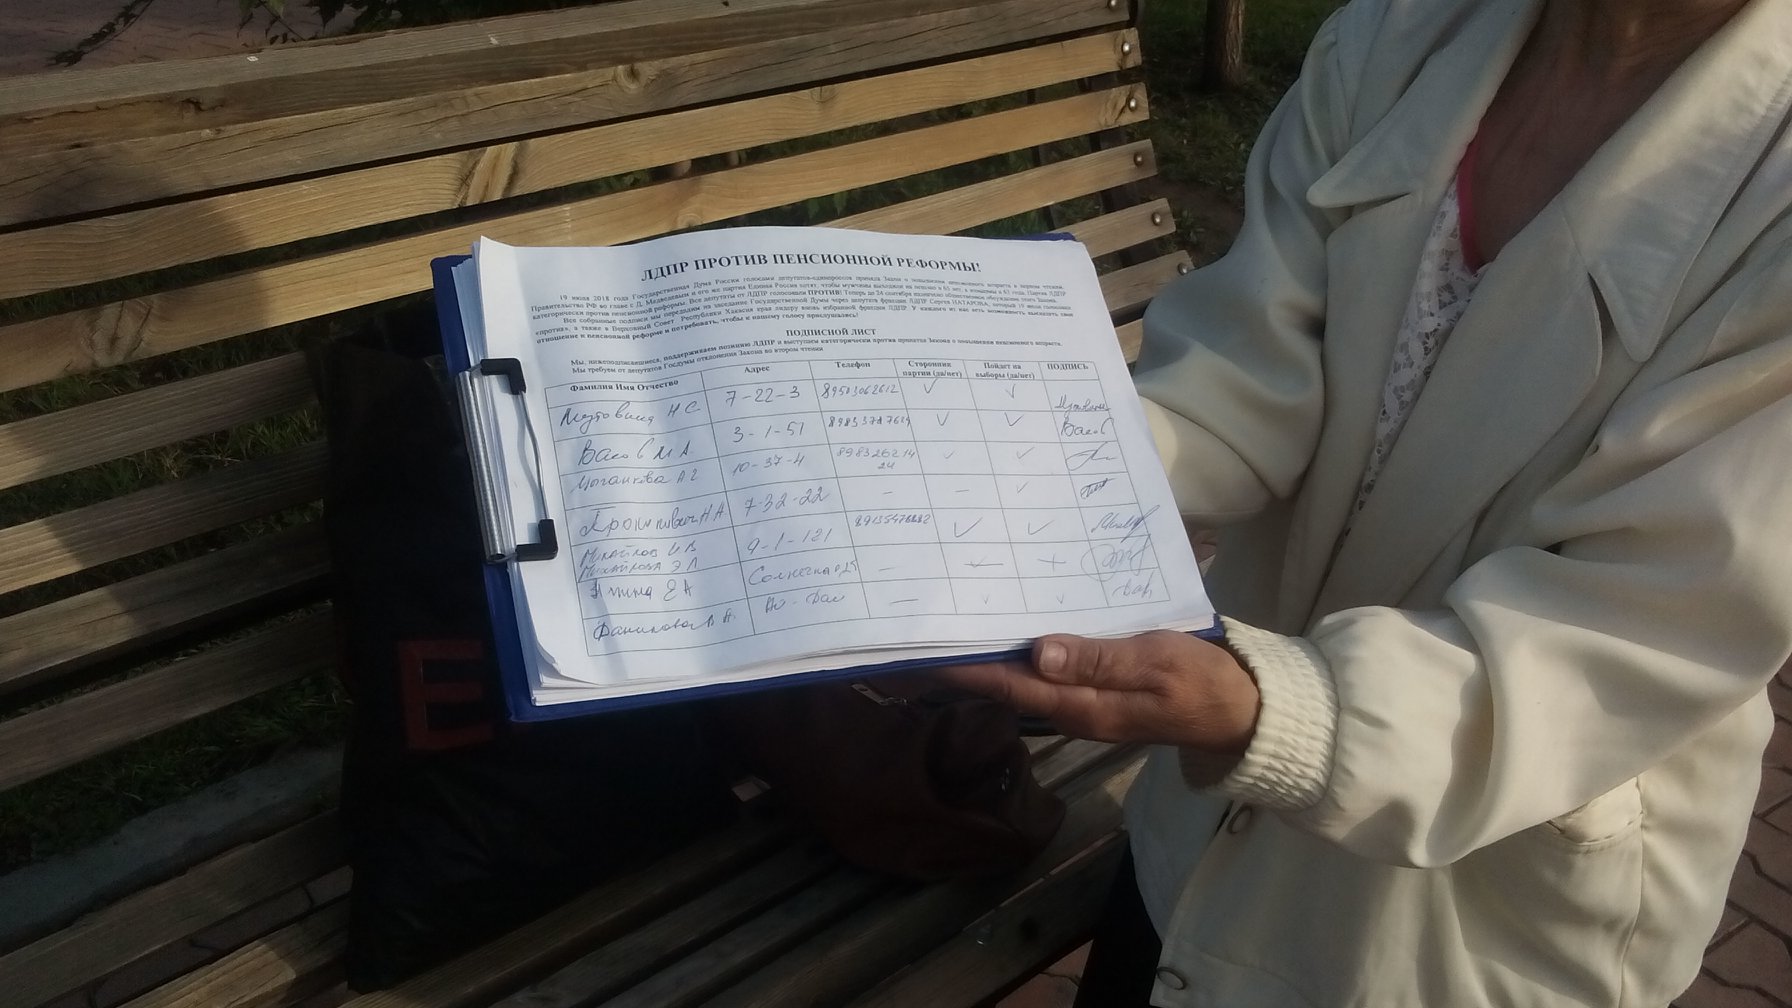 ЛДПР ПРОТИВ ПЕНСИОННОЙ РЕФОРМЫ!
19 июля 2018 года Государственная Дума России голосами депутатов-единороссов приняла Закон о повышении пенсионного возраста в первом чтении.
Правительство РФ во главе с Д. Медведевым и его же партия Единая Россия хотят, чтобы мужчины выходили на пенсию в 65 лет, а женщины в 63 года. Партия ЛДПР
категорически против пенсионной реформы. Все депутаты от ЛДПР голосовали ПРОТИВ! Теперь до 24 сентября назначено общественное обсуждение этого Закона.
Все собранные подписи мы передадим на заседание Государственной Думы через депутата фракции ЛДПР Сергея НАТАРОВА, который 19 июля голосовал
«против», а также в Верховный Совет Республики Хакасия края лидеру вновь избранной фракции ЛДПР. У каждого из нас есть возможность высказать свое
отношение к пенсионной реформе и потребовать, чтобы к нашему голосу прислушались!
ПОДПИСНОЙ ЛИСТ
Мы, нижеподписавшиеся, поддерживаем позицию ЛДПР и выступаем категорически против принятия Закона о повышении пенсионного возраста.
Мы требуем от депутатов Госдумы отклонения Закона во втором чтении
Фамилия Имя Отчество Адрес Телефон Сторонник партии (да/нет) Пойдет на выборы (да/нет) ПОДПИСЬ
Н С 7-22-3 89503062612
М А. 3-1-51
А Г 10-37-4 898326214
24
Н А 7-32-22 – –
Михайлов И В 9-1-121
Михайлова Э Л
Е А Солнечная —
В А. —
E